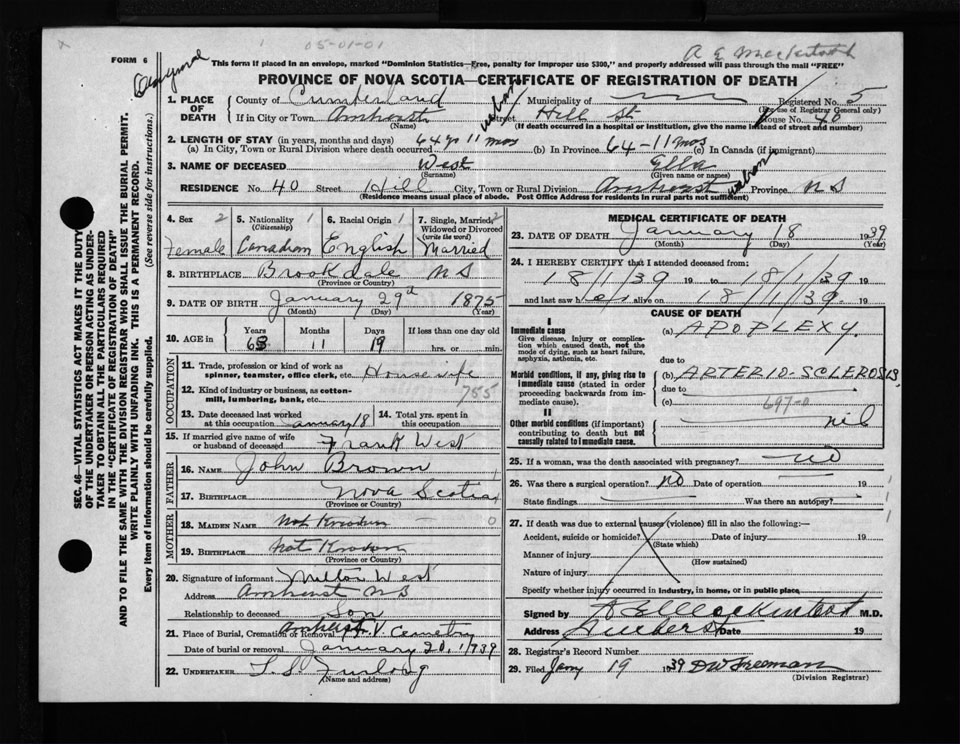 05-01-01
A E Mackintosh
FORM 6
This form if placed in an envelope, marked "Dominion Statistics—Free, penalty for improper use $300," and properly addressed will pass through the mail "FREE"
PROVINCE OF NOVA SCOTIA—CERTIFICATE OF REGISTRATION OF DEATH
1. PLACE OF DEATH
County of Cumberland Municipality of Registered No. 5
(For use of Registrar General only)
If in City or Town Amherst Street Hill St House No. 40
(Name) (If death occurred in a hospital or institution, give the name instead of street and number)
2. LENGTH OF STAY (in years, months and days) 64 yr 11 mos 64-11 mos
(a) In City, Town or Rural Division where death occurred (b) In Province (c) In Canada (if immigrant)
3. NAME OF DECEASED West Ella
(Surname) (Given name or names)
RESIDENCE No. 40 Street Hill City, Town or Rural Division Amherst Province N S
(Residence means usual place of abode. Post Office Address for residents in rural parts not sufficient)
SEC. 46—VITAL STATISTICS ACT MAKES IT THE DUTY
OF THE UNDERTAKER OR PERSON ACTING AS UNDER-
TAKER TO OBTAIN ALL THE PARTICULARS REQUIRED
IN THE "CERTIFICATE OF REGISTRATION OF DEATH"
AND TO FILE THE SAME WITH THE DIVISION REGISTRAR WHO SHALL ISSUE THE BURIAL PERMIT.
WRITE PLAINLY WITH UNFADING INK. THIS IS A PERMANENT RECORD.
Every item of Information should be carefully supplied. (See reverse side for instructions.)
4. Sex 2 5. Nationality 1 6. Racial Origin 1 7. Single, Married, 2
(Citizenship) Widowed or Divorced
(write the word)
Female Canadian English Married
8. BIRTHPLACE Brookdale N S
(Province or Country)
9. DATE OF BIRTH January 29th 1875
(Month) (Day) (Year)
10. AGE in Years Months Days If less than one day old
11 19 hrs. or min.
OCCUPATION
11. Trade, profession or kind of work as
spinner, teamster, office clerk, etc. Housewife
12. Kind of industry or business, as cotton-
mill, lumbering, bank, etc. 755
13. Date deceased last worked
at this occupation January 18
14. Total yrs. spent in
this occupation
15. If married give name of wife
or husband of deceased Frank West
FATHER
16. NAME John Brown
17. BIRTHPLACE Nova Scotia
(Province or Country)
MOTHER
18. MAIDEN NAME Not Known 0
19. BIRTHPLACE Not Known
(Province or Country)
20. Signature of informant Milton West
Address Amherst N S
Relationship to deceased Son
21. Place of Burial, Cremation or Removal Amherst Cemetry
Date of burial or removal January 20, 1939
22. UNDERTAKER Furlong
(Name and address)
MEDICAL CERTIFICATE OF DEATH
23. DATE OF DEATH January 18 1939
(Month) (Day) (Year)
24. I HEREBY CERTIFY that I attended deceased from:
18/1/39 19 to 18/1/39 19
and last saw her alive on 18/1/39. 19
CAUSE OF DEATH
I
Immediate cause
Give disease, injury or complica-
tion which caused death, not the
mode of dying, such as heart failure,
asphyxia, asthenia, etc.
(a) APOPLEXY
due to
Morbid conditions, if any, giving rise to
immediate cause (stated in order
proceeding backwards from im-
mediate cause).
(b) ARTERIO-SCLEROSIS,
due to
(c) 697-0
II
Other morbid conditions (if important)
contributing to death but not
causally related to immediate cause.
nil
25. If a woman, was the death associated with pregnancy? NO
26. Was there a surgical operation? NO Date of operation 19
State findings Was there an autopsy?
27. If death was due to external causes (violence) fill in also the following:—
Accident, suicide or homicide? Date of injury 19
(State which)
Manner of injury
(How sustained)
Nature of injury
Specify whether injury occurred in industry, in home, or in public place
Signed by A E Mackintosh M.D.
Address Amherst Date 19
28. Registrar's Record Number
29. Filed Jany 19 1939 D W Freeman
(Division Registrar)